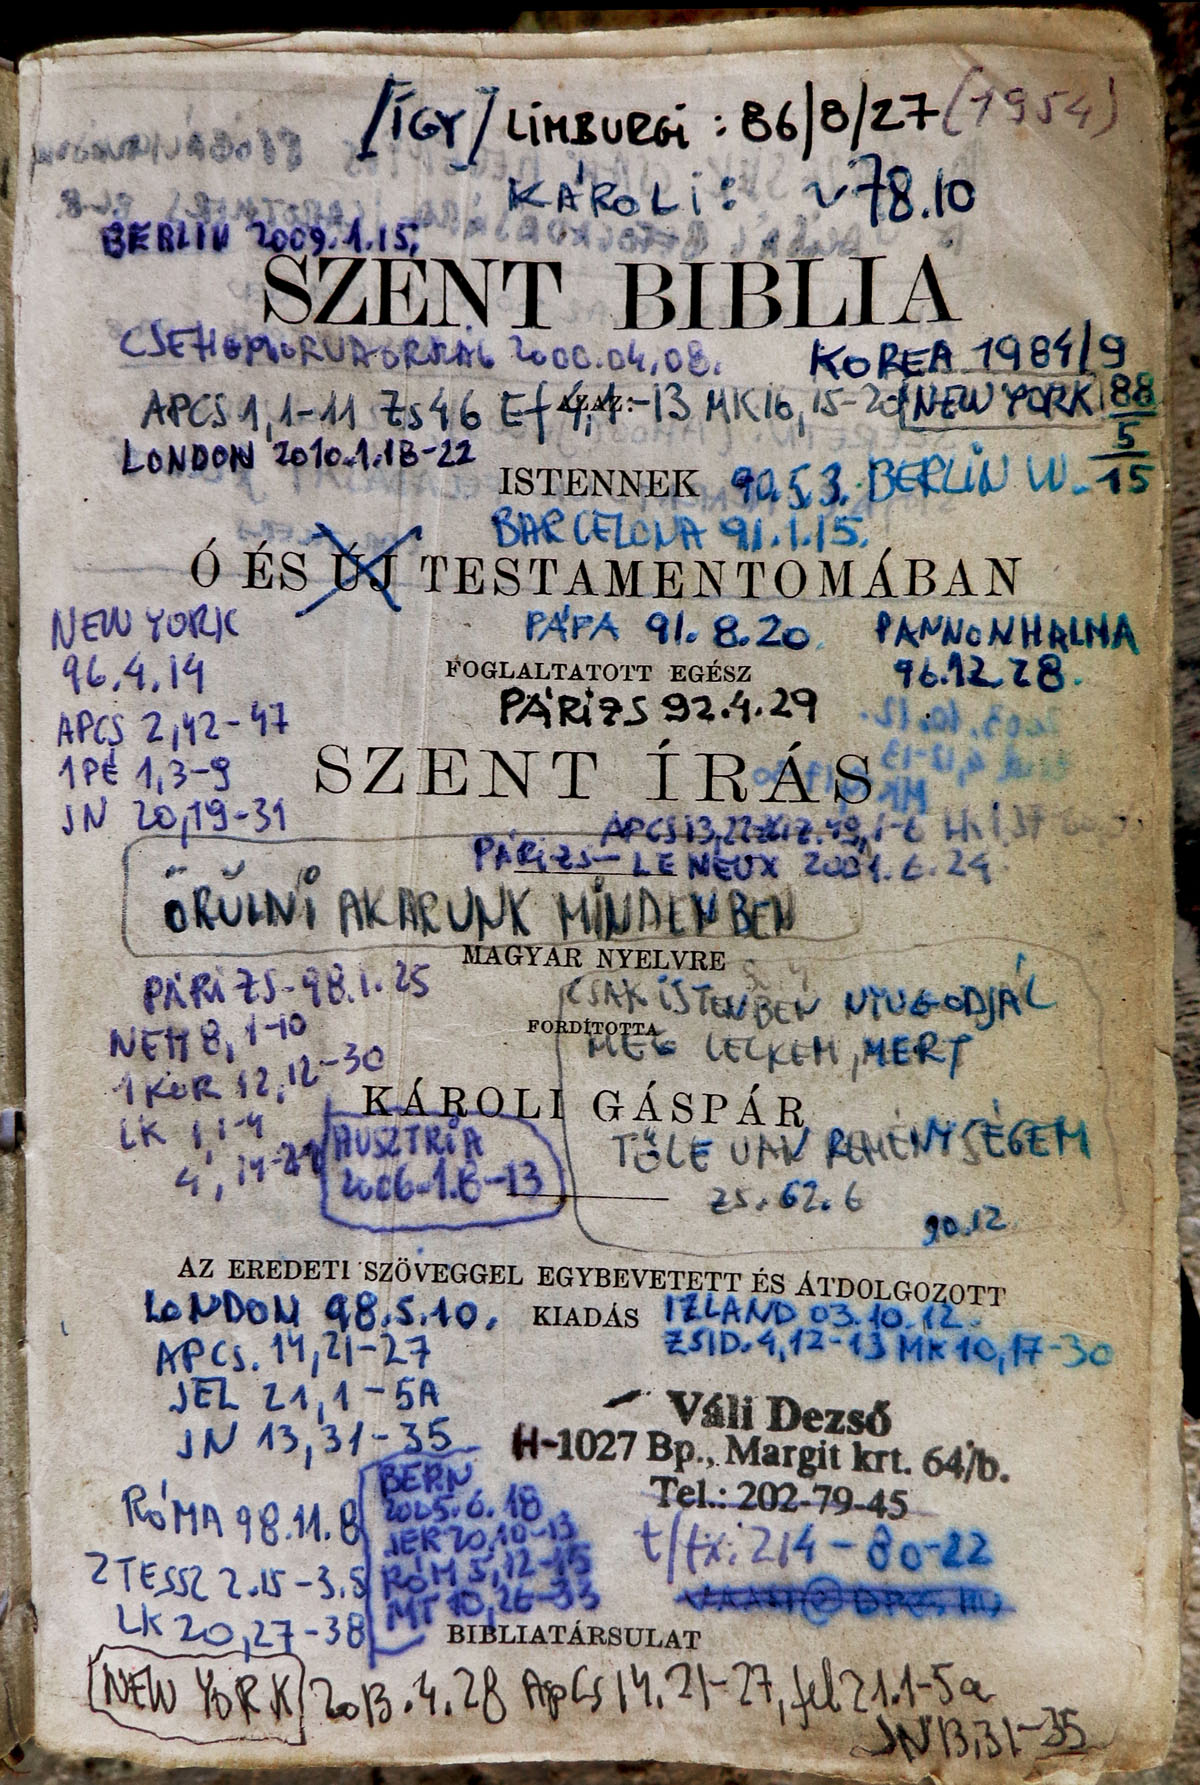 [ÍGY] LIMBURGI : 86/8/27 (1954)
KÁROLI: ~78.10
BERLIN 2009.1.15.
SZENT BIBLIA
2000.04.08.
KOREA 1984/9
APCS 1,1-11 ZS 46 Ef 4,1-13 MK 16,15-20
AZAZ:
NEW YORK 88/5/15
LONDON 2010.1.18-22
ISTENNEK
90.5.3. BERLIN W.
BARCELONA 91.1.15.
Ó ÉS ÚJ TESTAMENTOMÁBAN
NEW YORK
96.4.14
APCS 2,42-47
1PÉ 1,3-9
JN 20,19-31
PÁPA 91.8.20.
PANNONHALMA
96.12.28.
FOGLALTATOTT EGÉSZ
PÁRIZS 92.4.29
SZENT ÍRÁS
PÁRIZS - 2001.6.24
ŐRÜLNI AKARUNK MINDENBEN
MAGYAR NYELVRE
PÁRIZS-98.1.25
NEH 8,1-10
1KOR 12,12-30
LK 1,1-4
4,14-21
CSAK ISTENBEN NYUGODJÁL
FORDÍTOTTA
MEG LELKEM, MERT
KÁROLI GÁSPÁR
TŐLE VAN REMÉNYSÉGEM
ZS. 62.6
90.12
AUSZTRIA
2006.1.8-13
AZ EREDETI SZÖVEGGEL EGYBEVETETT ÉS ÁTDOLGOZOTT
KIADÁS
LONDON 98.5.10.
APCS. 14,21-27
JEL 21,1-5A
JN 13,31-35
IZLAND 03.10.12.
ZSID.4,12-13 MK 10,17-30
Váli Dezső
H-1027 Bp., Margit krt. 64/b.
Tel.: 202-79-45
t/fx: 214-80-22
RÓMA 98.11.8
2TESSZ 2.15-3.5
LK 20,27-38
BERN
2005.6.18
JER 20,10-13
RÓM 5,12-15
MT 10,26-33
BIBLIATÁRSULAT
NEW YORK 2013.4.28 ApCs 14,21-27, Jel 21.1-5a
JN 13,31-35